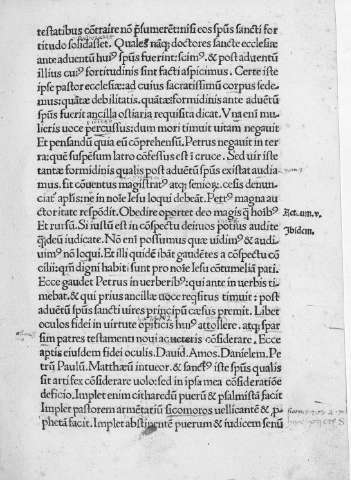 testatibus cōtraire nō p̄sumerēt: nisi eos spūs sancti for
titudo solidasset. Quales nāq; doctores sancte ecclesiæ
ante aduentū huiꝰ spūs fuerint: scimꝰ. & post aduentū
illius cuiꝰ fortitudinis sint facti aspicimus. Certe iste
ipse pastor ecclesiæ: ad cuius sacratissimū corpus sede-
mus: quātæ debilitatis. quātæꝗ formidinis ante aduētū
spūs fuerit ancilla ostiaria requisita dicat. Vna eni mu
lieris uoce percussus: dum mori timuit uitam negauit
Et pensandū quia eū cōprehensū. Petrus negauit in ter
ra: quē suspēsum latro cōfessus est ī cruce. Sed uir iste
tantæ formidinis qualis post aduentū spūs existat audia
mus. fit cōuentus magistratꝰ atq; seniorꝝ. cesis denun
ciat̄ apl̄is: ne in noīe Iesu loqui debeāt. Petrꝰ magna au
ctoritate respōdit. Obedire oportet deo magis ꝙ̄ hoībꝰ
Et rursū. Si iustū est in cōspectu dei uos potius audire
ꝙ̄ deū iudicate. Nō enī possumus quæ uidimꝰ & audi-
uimꝰ nō loqui. Et illi quidē ibāt gaudētes a cōspectu cō
cilii: qm̄ digni habiti sunt pro noīe Iesu cōtumeliā pati.
Ecce gaudet Petrus in uerberibꝰ: qui ante in uerbis ti-
mebat. & qui prius ancillæ uoce reqsitus timuit: post
aduētū spūs sancti uires principū cæsus premit. Libet
oculos fidei in uirtute opificis huiꝰ attollere. atq; spar
sim patres testamenti noui ac ueteris cōsiderare. Ecce
aptis eiusdem fidei oculis. Dauid. Amos. Danielem. Pe
trū Paulū. Matthæū intueor. & sanctꝰ iste spūs qualis
sit artifex cōsiderare uolo: sed in ipsa mea cōsideratiōe
deficio. Implet enim citharedū puerū & psalmistā facit
Implet pastorem armētariū sicomoros uellicantē & ꝓ
phetā facit. Implet abstinentē puerum & iudicem senū
Act. iiii. v.
Ibidem.